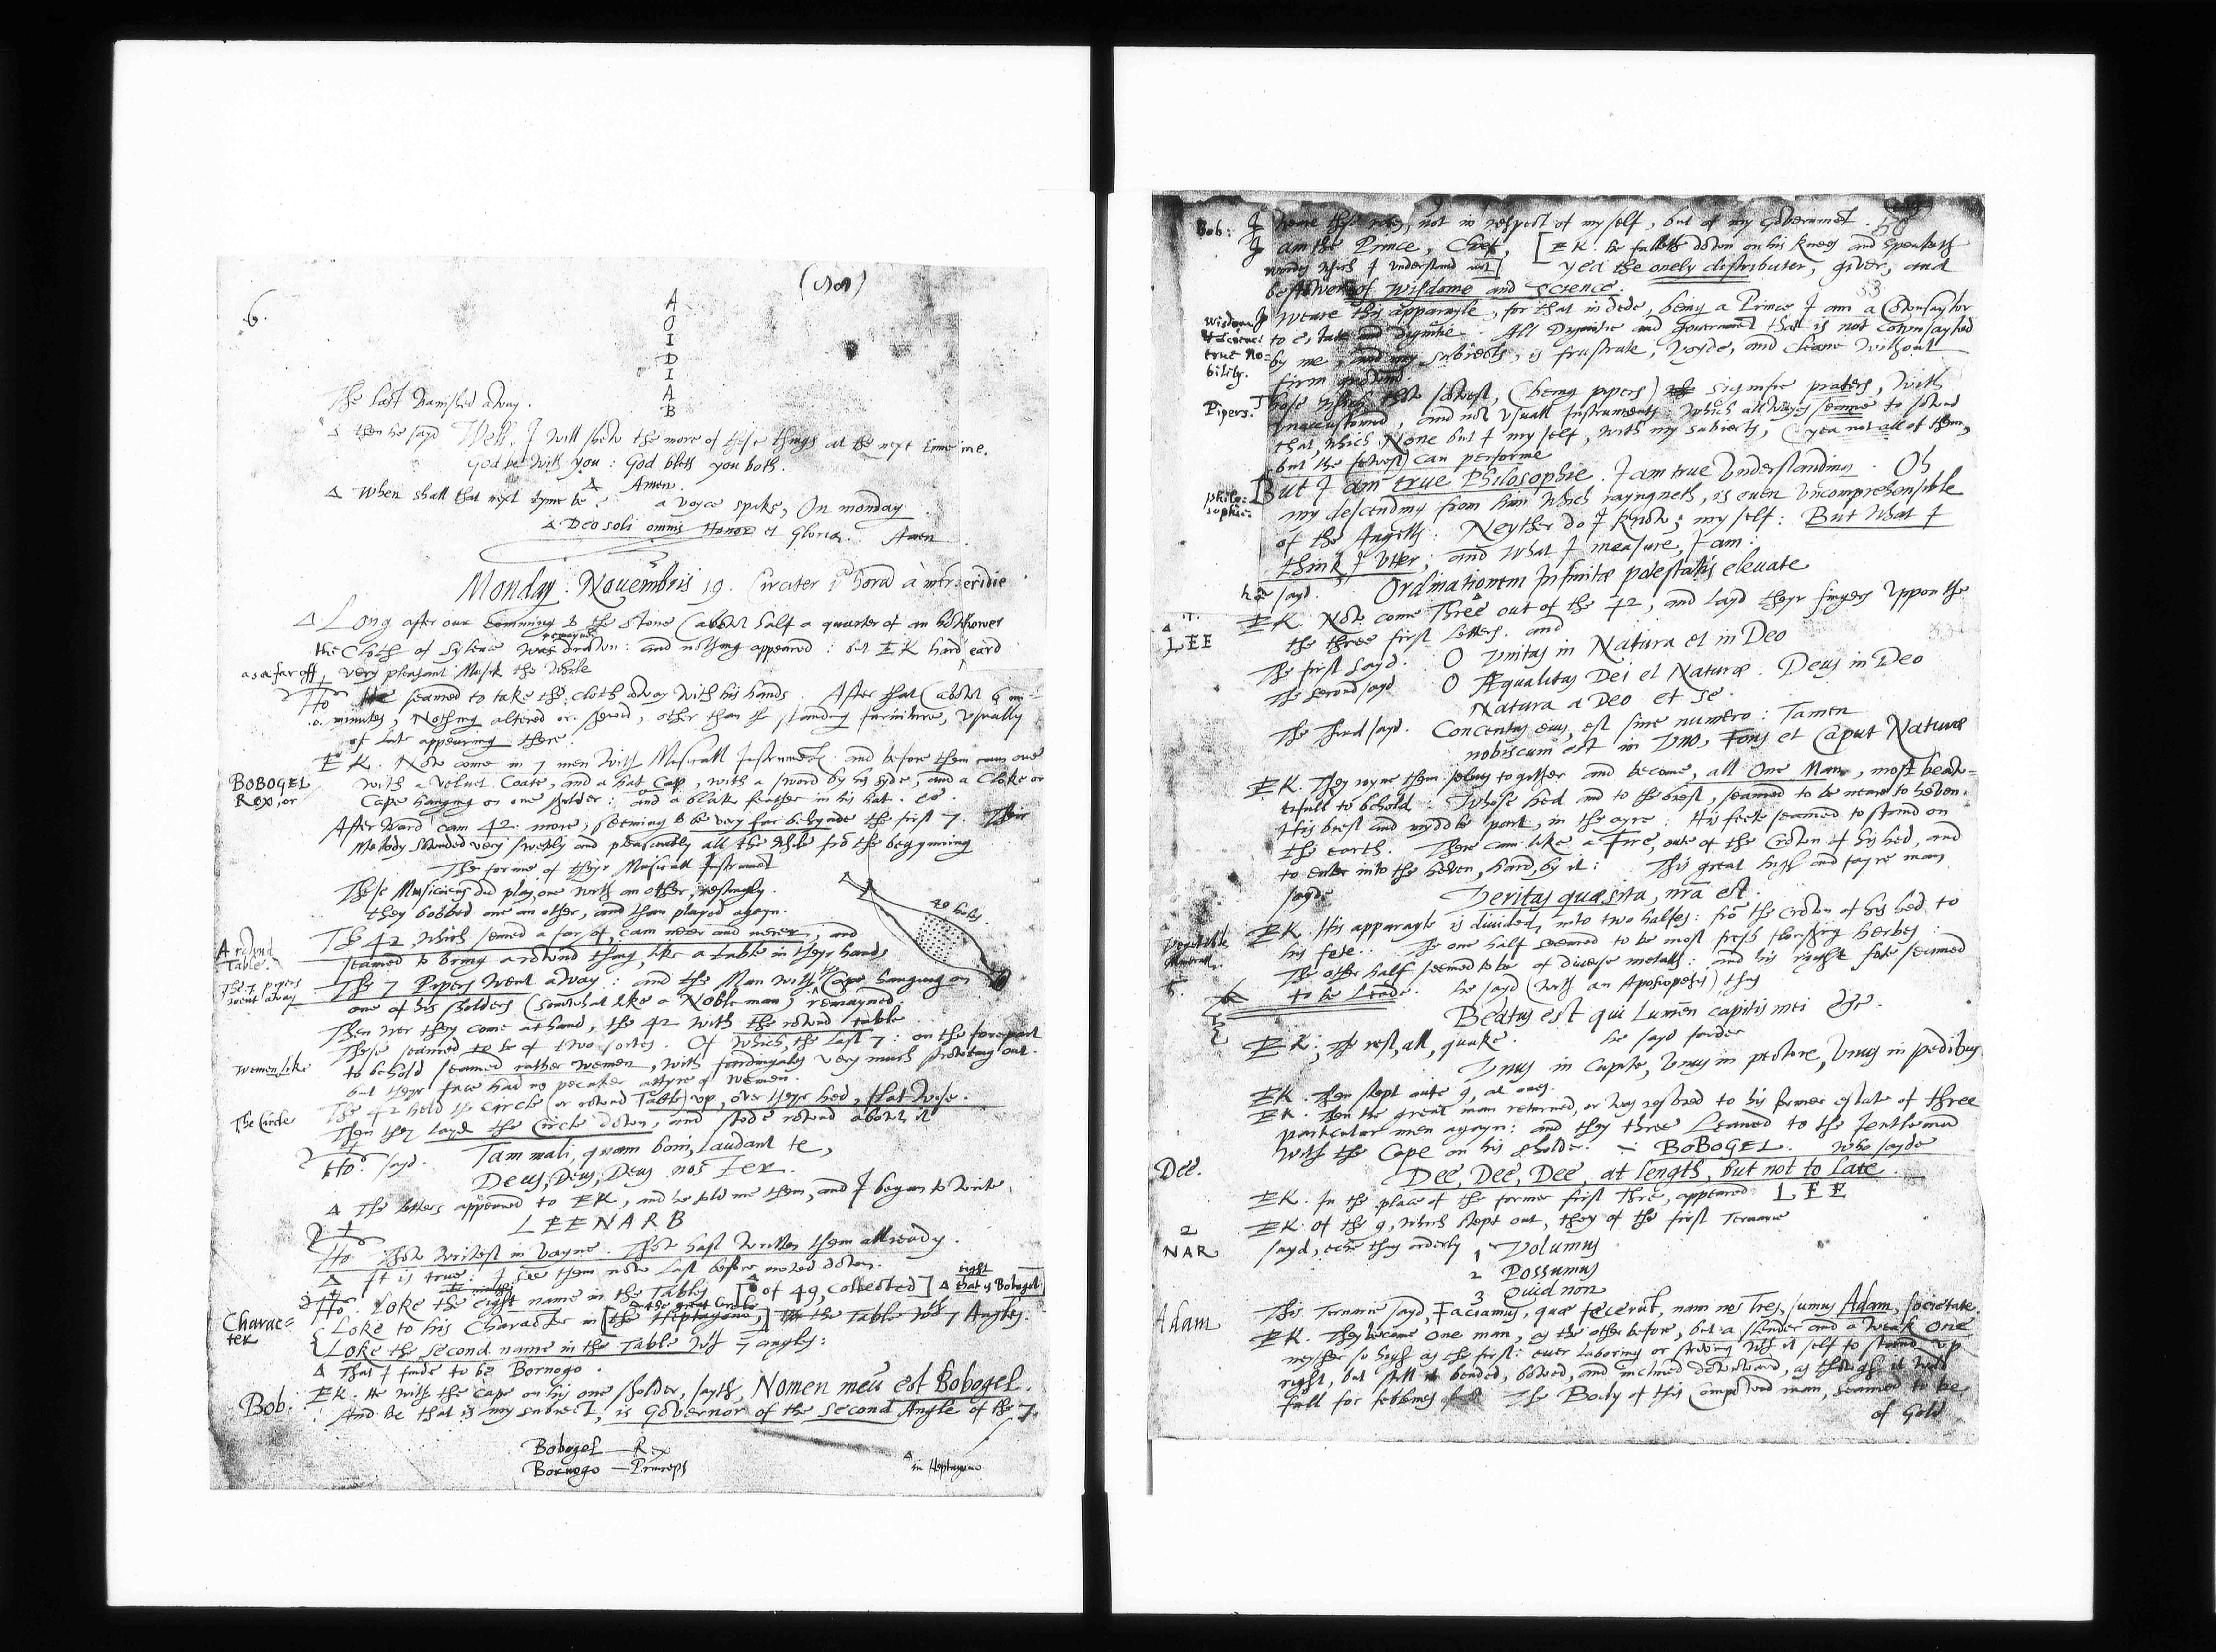 6.
A
O
I
D
I
A
B
The last vanished away.
Δ then he sayd Well, I will shew the more of these things at the next tyme
God be with you: God bless you both.
Δ Amen.
Δ When shall that next tyme be? a voyce spake, On monday
Δ Deo soli omnis Honor et Gloria. Amen
Monday: Nouembris 19. Circiter 1 hora a meridie
Δ Long after our comming to the stone (about half a quarter of an howre
the Cloth of Sylence remayned drawn: and nothing appeared: but EK hard
as a far off, very pleasant Musik the while
Ho he seamed to take the cloth away with his hands. After that (about 6
minutes, Nothing altered or shewed, other than the standing furniture, usually
of late appearing there.
EK. Now come in 7 men with Musicall Instruments and before them cam one
BOBOGEL
Rex, or
with a velvet Coate, and a hat Cap, with a sword by his syde, and a Cloke or
Cape hanging on one sholder: and a blak feather in his hat. &c.
Afterward cam 42 more, seeming to be very far behynde the first 7. Their
Melody sownded very swetely and pleasantly all the while frō the begynning
The forme of theyr Musicall Instrument
40 holes
These Musiciens did play, one with an other, jestingly.
they bobbed one an other, and than played agayn.
A rownd
Table.
The 42, which semed a far of, cam nerer and nerer, and
seamed to bring a rownd thing, like a table in theyr hands
The 7 pipers
went away
The 7 Pipers went away: and the Man with the Cape hanging on
one of his sholders (somwhat like a Noble man) remayned.
Then wer they come at hand, the 42 with the rownd table
These seamed to be of two sortes. Of which, the last 7: on the forepart
Women like
to behold seamed rather women, with fardingales very much strowting out.
but theyr face had no peculier attyre of women.
The Circle
The 42 held the Circle (or rownd Table) up, over theyr hed, flat wise.
Then they layd the Circle down, and stode rownd about it
Ho. sayd. Tam mali, quam boni, laudant te,
Deus, Deus, Deus noster.
Δ The letters appeared to EK, and he told me them, and I began to write
LEENARB
Ho Thow writest in vayne. Thow hast written them allready.
Δ It is true: I see them now last before noted down.
Ho. Loke the eight name in the Tables [Δ of 49, collected] Δ that is Bobogel
Charac=
ter
Loke to his Character in [the Heptagone,] the Table with 7 Angles.
Loke the second name in the Table with 7 angles:
Δ That I finde to be Bornogo.
Bob:
EK. He with the cape on his one sholder, sayth, Nomen meū est Bobogel.
And he that is my subiect, is Governor of the second Angle of the 7.
Bobogel — Rex
Bornogo — Princeps
Δ in Heptagono
Bob: I weare these robes, not in respect of my self, but of my Government.
I am the Prince, Chief, [EK. he falleth down on his knees and speaketh
words which I understand not] yea the onely distributer, giver, and
bestower of wisdome and Science.
53
Wisdom
& Science
true No=
bility.
I weare this apparayle, for that in dede, being a Prince I am a Cownsaylor
to estate and dignitie. All Dignitie and Gouerment that is not cownsayled
by me, and my subiects, is frustrate, voyde, and cleane without
firm grownd.
Pipers.
Those which thow sawest, (being pipers) signifie praters, with
unaccustomed, and not usuall Instruments: which allwayes seame to sownd
that, which None but I my self, with my subiects, (yea not all of them,
but the fewest) can performe
Philo=
sophie.
But I am true Philosophie. I am true understanding. Oh
my descending from him which rayngneth, is euen vncomprehensible
of the Angells: Neyther do I know, my self: But what I
think I utter, and what I measure, I am:
he sayd. Ordinationem Infinitæ potestatis eleuate
1.
LEE
EK. Now come Three out of the 42, and layd theyr fingers uppon the
the three first letters. and
The first sayd. O Vnitas in Natura et in Deo
The second sayd O Æqualitas Dei et Naturæ. Deus in Deo
Natura a Deo et Se.
The Third sayd. Concentus eius, est sine numero: Tamen
nobiscum est in Vno, Fons et Caput Naturæ
EK. They ioyne them selues to gether and become, all One Man, most beaw=
tifull to behold: Whose hed and to the brest, seamed to be neare to heven.
His brest and myddle part, in the ayre: His feete seamed to stand on
the earth. There cam like a Fire, oute of the Crown of his hed, and
to enter into the heven, hard, by it: This great high and fayre man
sayd: Veritas quæsita, nrā est.
Vegetable
Minerall
EK. His apparayle is divided, into two halfes: frō the crown of his hed, to
his fete. The one half seemed to be most fresh florishing herbes:
The other half seemed to be of diverse metalls: and his right fote seamed
to be Leade. he sayd (with an Aposiopesis) thus
Beatus est qui Lumen capitis mei &c.
EK; The rest, all, quake. he sayd farder
Vnus in Capite, Vnus in pectore, Vnus in pedibus
EK. Then stept oute 9, at ones.
EK. Then the great man returned, or was restored to his former estate of three
particuler men agayn: and they three leaned to the Jentleman
with the Cape on his sholder. BOBOGEL. who sayde
Dee.
Dee, Dee, Dee, at length, but not to late.
EK. In the place of the former first Thre, appeared LEE
EK. Of the 9, which stept out, they of the first Ternarie
2
NAR
sayd, eche thus orderly 1 Volumus
2 Possumus
3 Quid non
This Ternarie sayd, Faciamus, quæ fecerūt, nam nos Tres, sumus Adam, societate.
Adam
EK. They become one man, as the other before, but a slender and a weak one
neyther so high as the first: euer laboring or striving with it self to stand up
right, but still bended, bowed, and inclined downward, as though it wold
fall for feblenes The Body of this Compownd man, seamed to be
of Gold